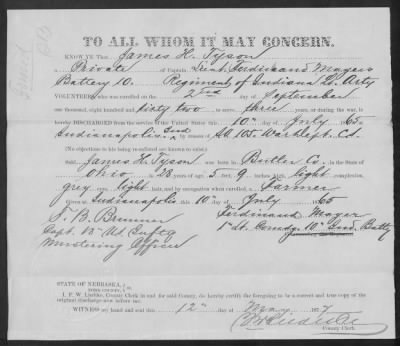 TO ALL WHOM IT MAY CONCERN.
KNOW YE That James H. Tyson
a Private of Captain Lieut. Ferdinand Mayer
Battery 10. Regiment of Indiana Lt. Arty
VOLUNTEERS who was enrolled on the 2nd day of September
one thousand, eight hundred and sixty two to serve three years, or during the war, is
hereby DISCHARGED from the service of the United States this 10" day of July 65
Indianapolis Ind by reason of A.O. 105. War Dept. Cd.
(No objections to his being re-enlisted are known to exist)
Said James H. Tyson was born in Butler Co. in the State of
Ohio is 23 years of age, 5 feet 9 inches high, light complexion,
grey eyes, light hair, and by occupation when enrolled, a Farmer
Given at Indianapolis this 10" day of July 65
Capt. 15" Ferdinand Mayer
Mustering Officer 1" Lt. Comdg. 10" Ind. Batty
STATE OF NEBRASKA,
YORK COUNTY,
County Clerk in and for said County, do hereby certify the foregoing to be a correct and true copy of the
original discharge now before me.
WITNESS my hand and this 12" day of May 1877
County Clerk